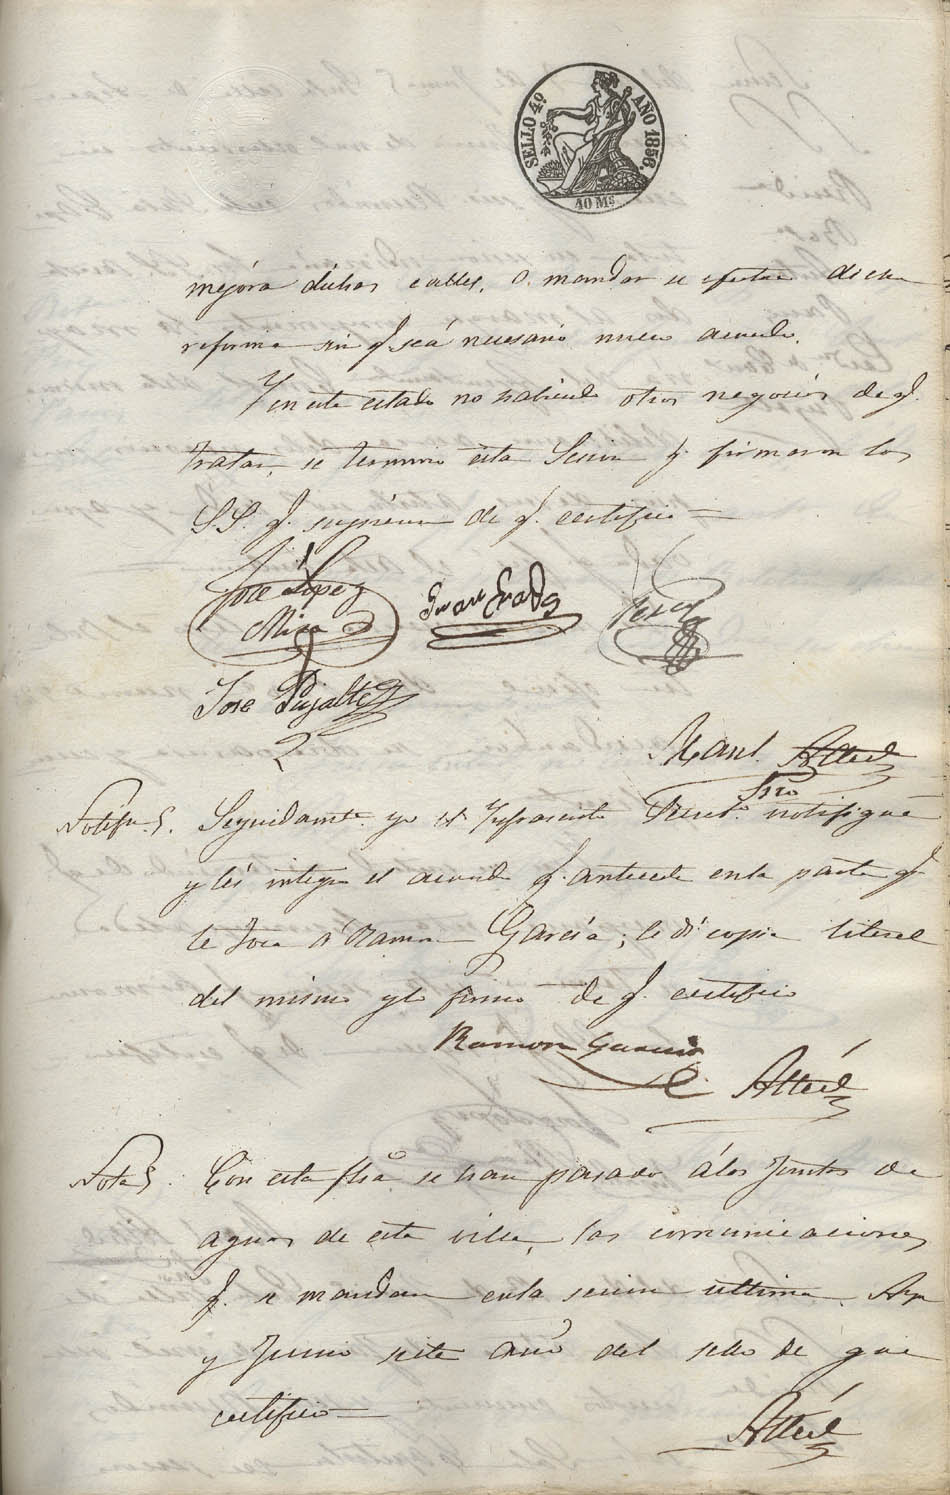 SELLO 4º AÑO 1856.
40 Ms
mejóra dichas calles, o mandar se efectue dicha
reforma sin q. seá necesario nuevo acuerdo.
Y en este estado no habiendo otros negocios de q.
tratar, se termino esta Sesion q. firmaron los
S.S. q. supieron de q. certifico =
José López
Mira
Juan Prads
José Pujalte
Manl. Alted
Srio
Notifn. Seguidamte. yo el Infrascrito Secreto. notifiqué
y leí integro el acuerdo q. antecede en la parte q.
le toca á Ramon García; le dí copia literal
del mismo y lo firmó de q. certifico
Ramon Garcia
Alted
Nota Con esta fha se han pasado á las Juntas de
aguas de esta villa, las comunicaciones
q. se mandan en la sesion ultima. Asp
y Junio siete año del sello de que
certifico =
Alted